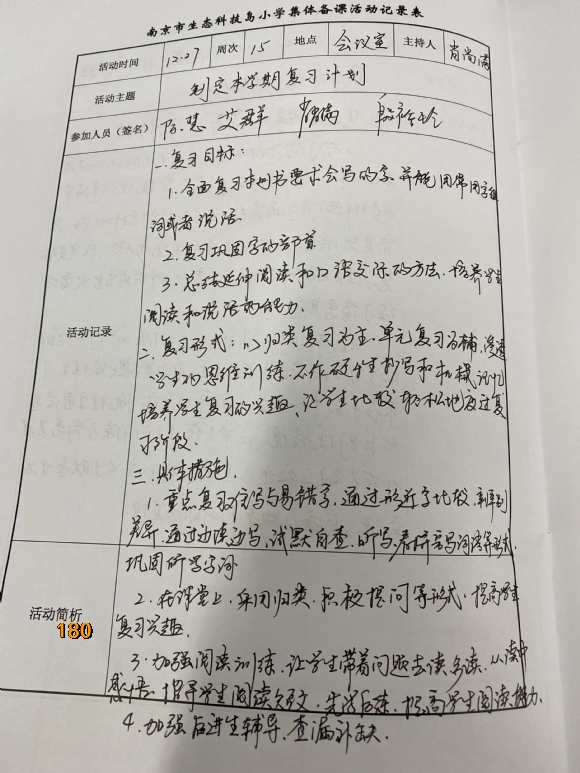 南京市生态科技岛小学集体备课活动记录表
活动时间 12.27 周次 15 地点 会议室 主持人 肖尚满
活动主题 制定本学期复习计划
参加人员（签名） 陈慧 艾群
一.复习目标：
1.全面复习本册书要求会写的字,并能用常用字组
词或者说话.
2.复习巩固字的部首
3.总结延伸阅读和口语交际的方法.培养学生
阅读和说话的能力.
活动记录
二.复习形式：以归类复习为主.单元复习为辅,渗透
学生的思维训练.不作硬性抄写和机械记忆
培养学生复习的兴趣,让学生比较轻松地度过复
习阶段.
三.具体措施.
1.重点复习 写与易错字,通过形近字比较,
差异,通过边读边写,试默自查.听写,看拼音写词语等形式.
巩固所学字词
2.在课堂上,采用归类.积极提问等形式.提高学生
活动简析
180
复习兴趣.
3.加强阅读训练.让学生带着问题去读多读.从读中
感悟.指导学生阅读 文.先学后练.提高学生阅读能力.
4.加强后进生辅导.查漏补缺.